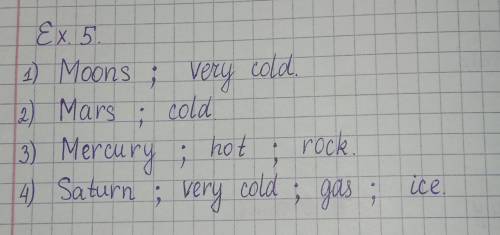 Ex. 5.
1) Moons ; very cold.
2) Mars ; cold
3) Mercury ; hot ; rock.
4) Saturn ; very cold ; gas ; ice.